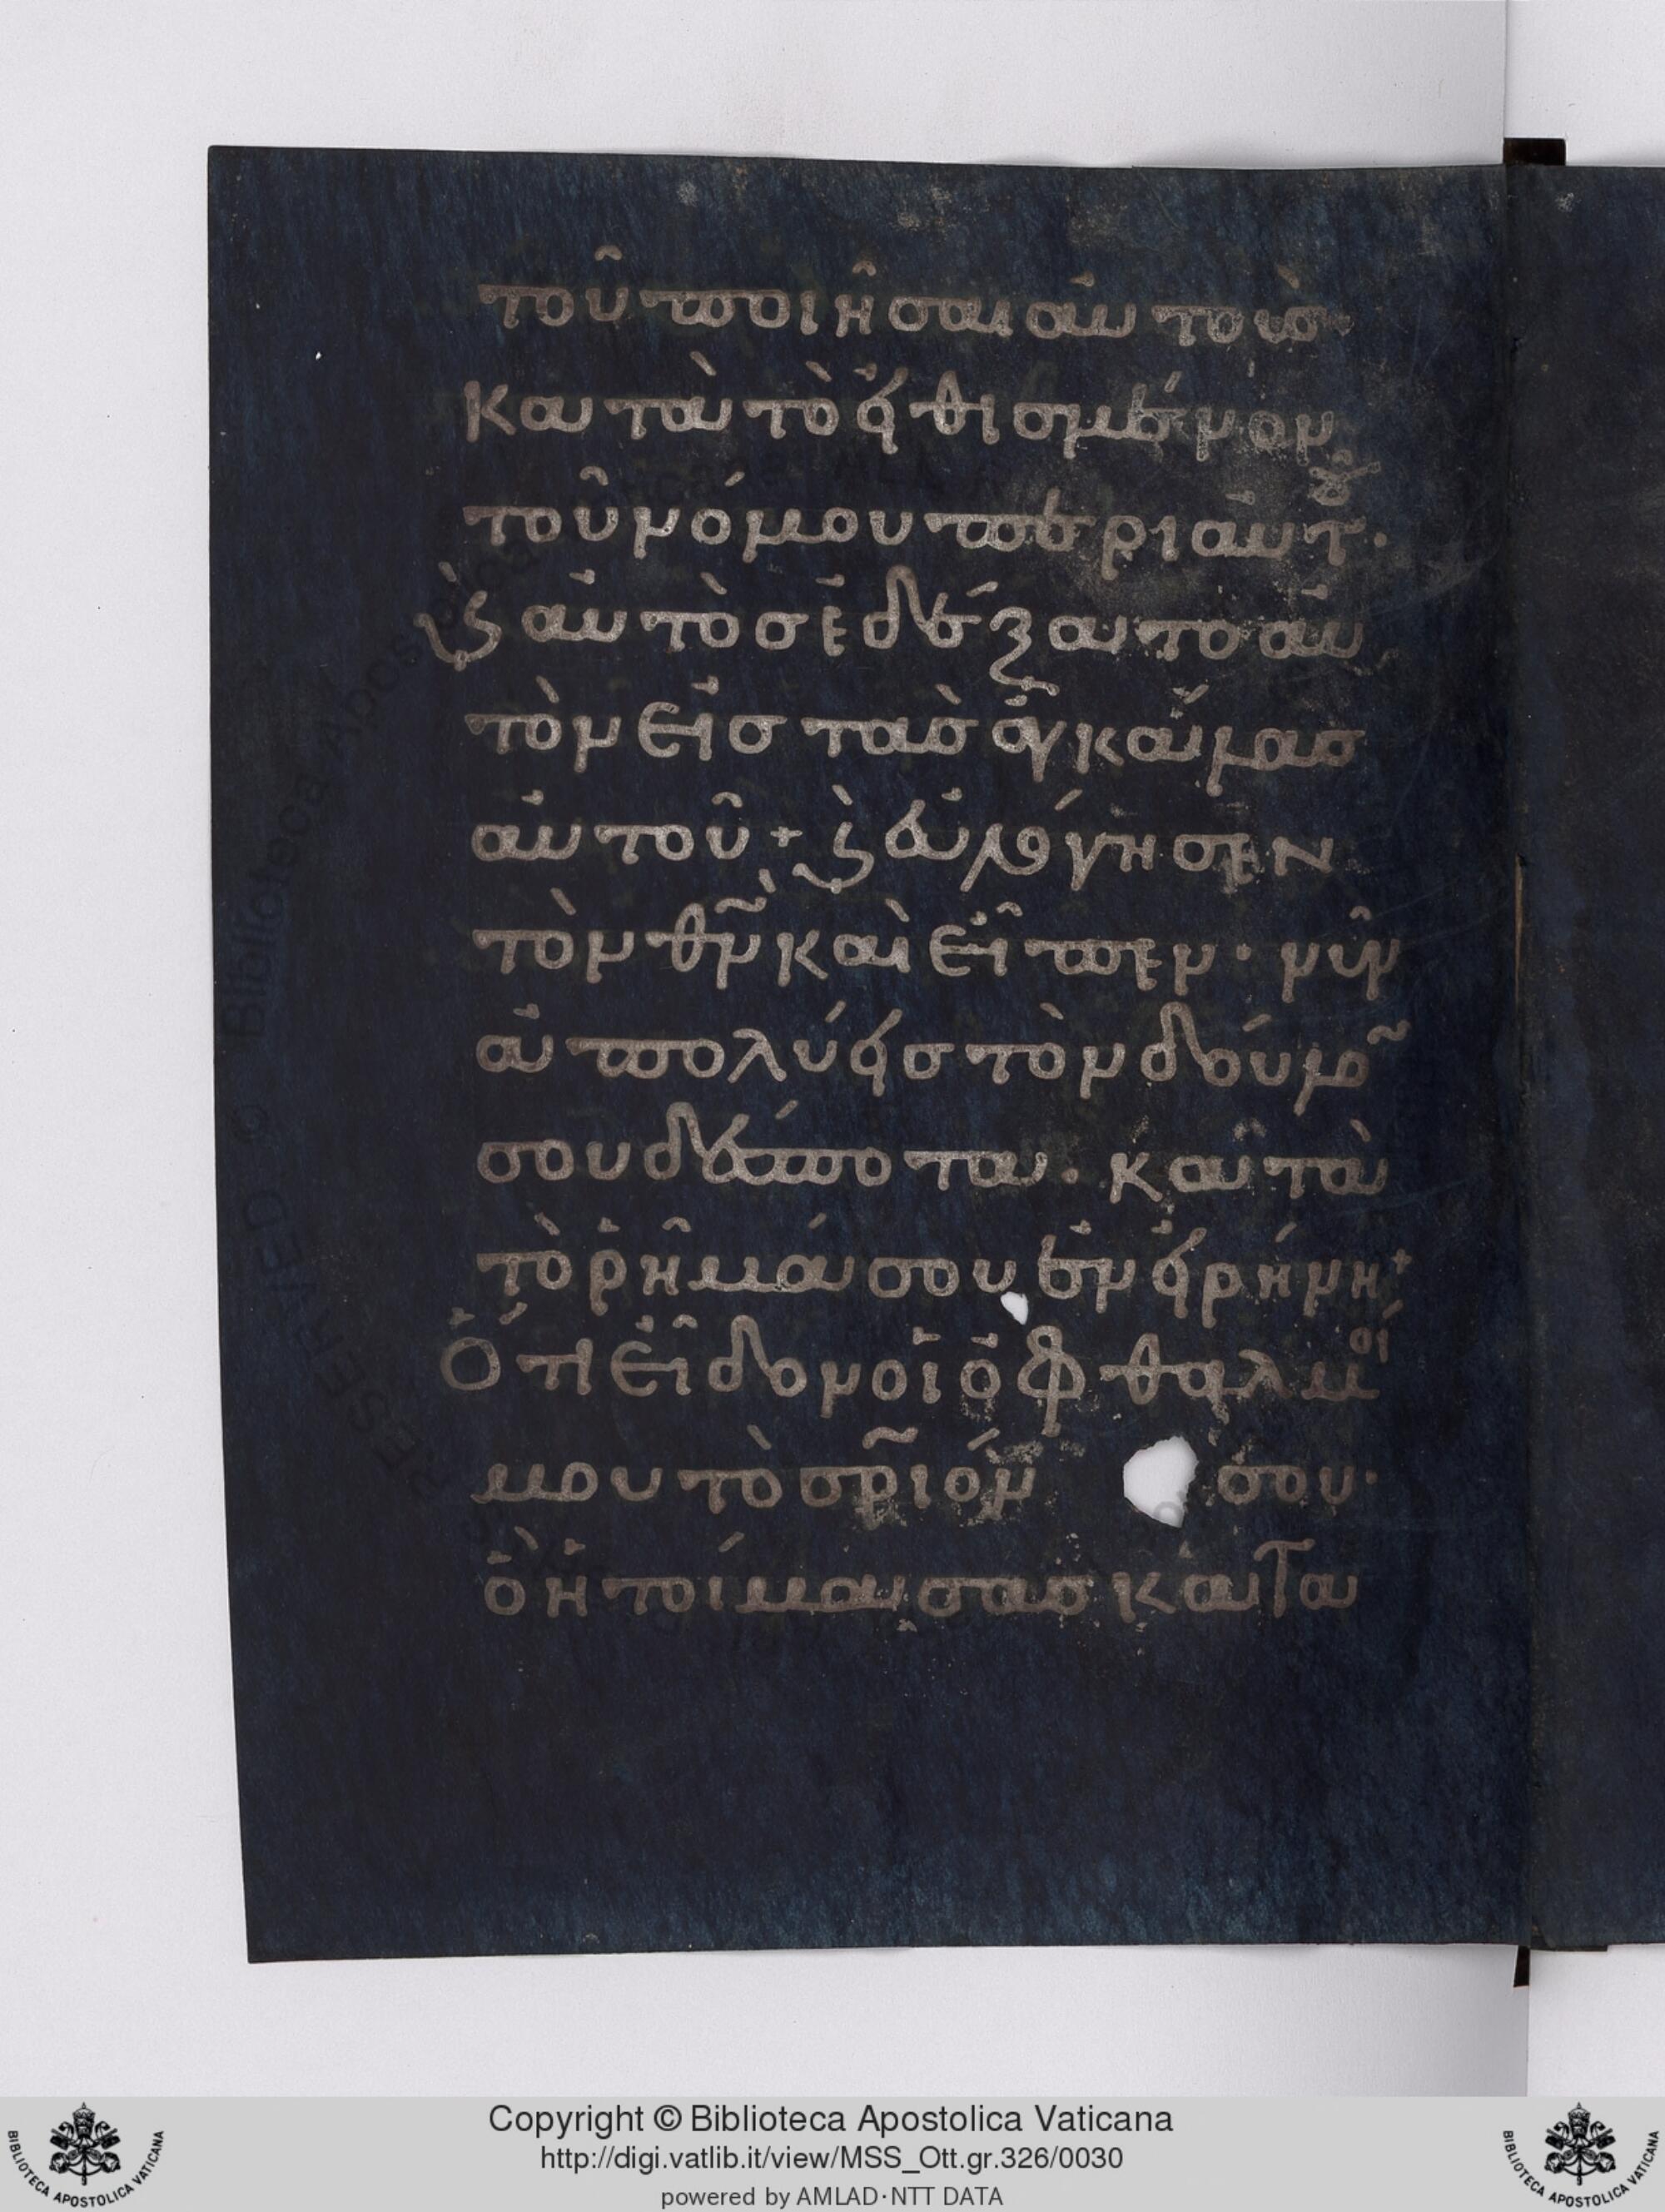 τοῦ ποιῆσαι αὐτοὺσ
κατὰ τὸ εἰθισμένον
τοῦ νόμου περὶ αὐτοῦ·
ϗ αὐτὸσ ἐδέξατο αὐ
τὸν εἰσ τὰσ ἀγκάλασ
αὐτοῦ + ϗ εὐλόγησεν
τὸν θν καὶ εἶπεν · νῦν
ἀπολύεισ τὸν δοῦλο
σου δέσποτα · κατὰ
τὸ ρῆμά σου ἐν εἰρήνη +
Ὅτι εἶδον οἱ ὀφθαλμοί
μου τὸ σριόν σου ·
ὃ ἡτοίμασασ κατα
Copyright © Biblioteca Apostolica Vaticana
http://digi.vatlib.it/view/MSS_Ott.gr.326/0030
powered by AMLAD·NTT DATA
BIBLIOTECA APOSTOLICA VATICANA
BIBLIOTECA APOSTOLICA VATICANA